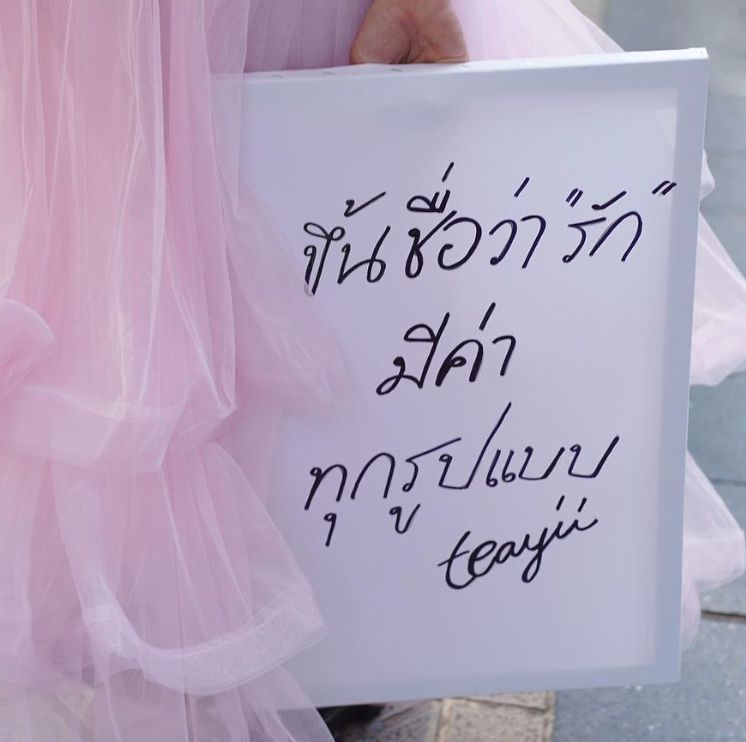 ขึ้นชื่อว่า "รัก"
มีค่า
ทุกรูปแบบ
teayii